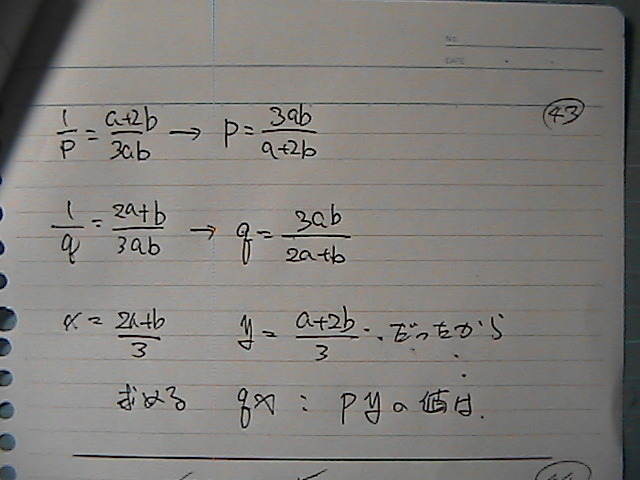 No.
DATE
43
1/p = (a+2b)/3ab → p = 3ab/(a+2b)
1/q = (2a+b)/3ab → q = 3ab/(2a+b)
x = (2a+b)/3 y = (a+2b)/3 ・・だったから
求める qx : py の値は.